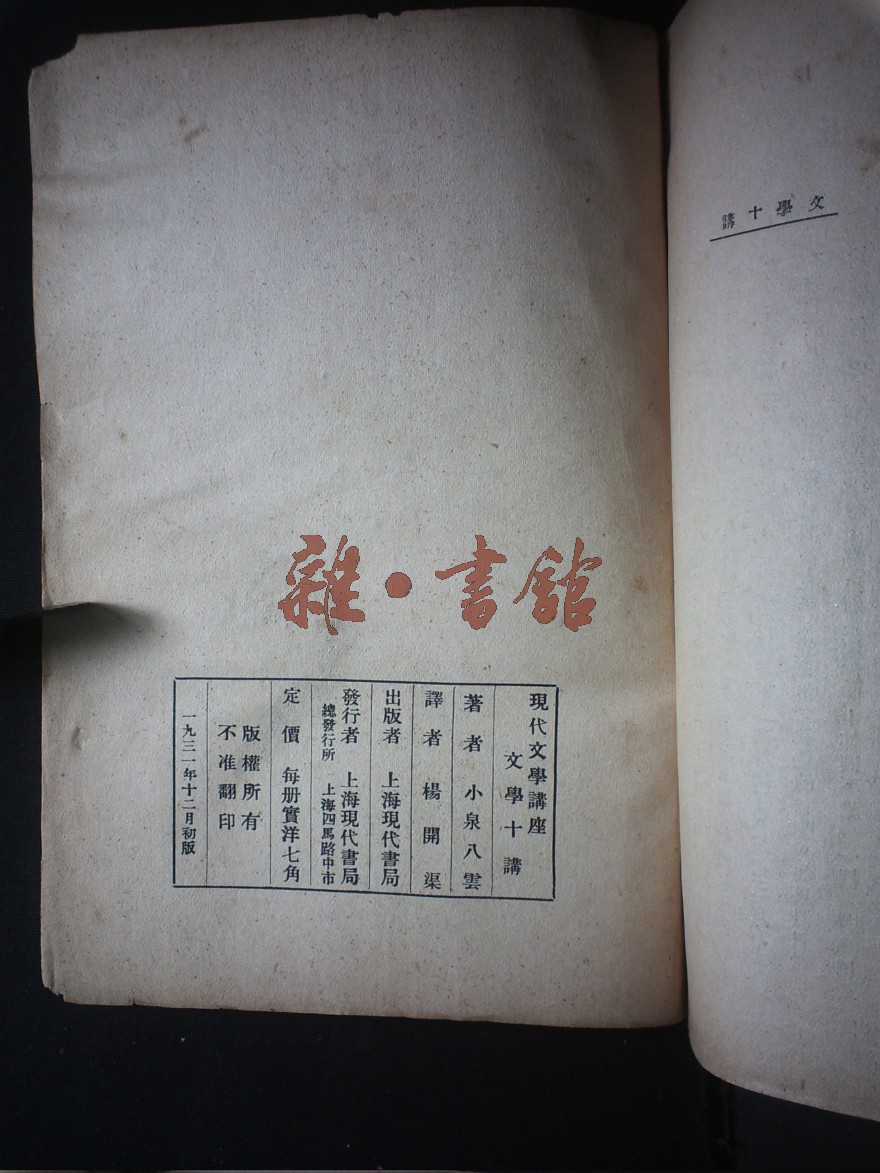 文學十講
雜·書館
現代文學講座
文學十講
著者 小泉八雲
譯者 楊開渠
出版者 上海現代書局
發行者 上海現代書局
總發行所 上海四馬路中市
定價 每册實洋七角
版權所有
不准翻印
一九三一年十二月初版